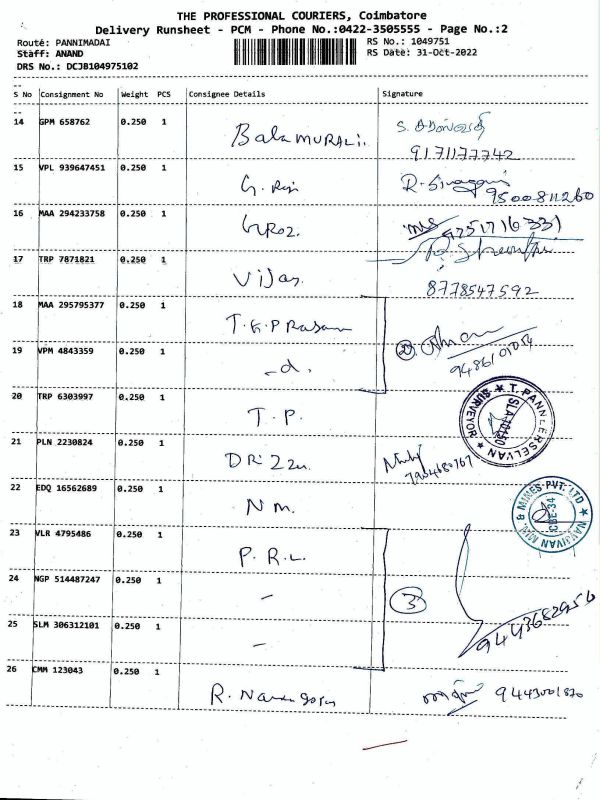 THE PROFESSIONAL COURIERS, Coimbatore
Delivery Runsheet - PCM - Phone No.:0422-3505555 - Page No.:2
Route: PANNIMADAI
RS No.: 1049751
Staff: ANAND
RS Date: 31-Oct-2022
DRS No.: DCJB104975102
S No Consignment No Weight PCS Consignee Details Signature
14 GPM 658762 0.250 1 Bala MURALi
9171177742
15 VPL 939647451 0.250 1
9500811260
16 MAA 294233758 0.250 1
9251716331
17 TRP 7871821 0.250 1 Vijay
8778547592
18 MAA 295795377 0.250 1 T.K.P Rasam
19 VPM 4843359 0.250 1 -d. 2
9486101054
20 TRP 6303997 0.250 1 T.P.
T. PANNEERSELVAN
SURVEYOR
21 PLN 2230824 0.250 1
7904680767
22 EDQ 16562689 0.250 1 N.M.
MINES PVT. LTD
CBE-34
23 VLR 4795486 0.250 1 P.R.L.
24 NGP 514487247 0.250 1 - 3
25 SLM 306312101 0.250 1 -
9443682956
26 CMM 123043 0.250 1
9443001870